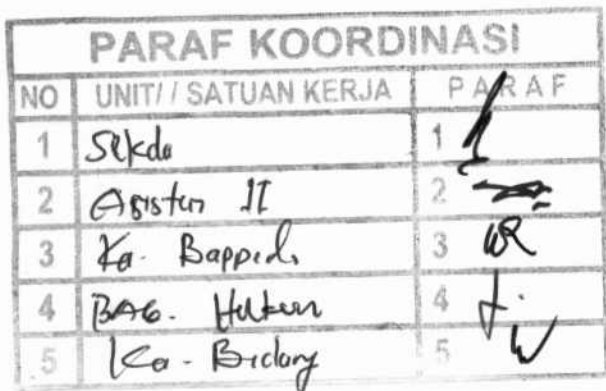 PARAF KOORDINASI
NO UNIT/ / SATUAN KERJA PARAF
1 Sekda 1
2 Asisten II 2
3 Ka. Bappeda 3
4 BAG. Hukum 4
5 Ka. Bidang 5